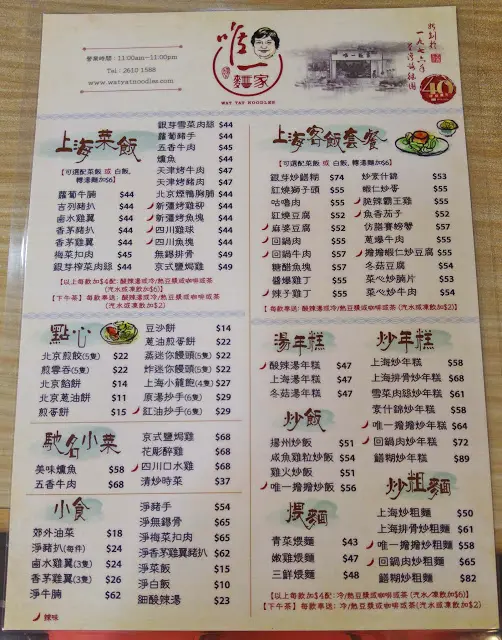 營業時間：11:00am~11:00pm
Tel : 2610 1588
www.watyatnoodles.com
唯一麵家
WAT YAT NOODLES
創於一九七六年
40
上海菜飯
【可選配菜飯 或 白飯, 轉湯麵加$6】
蘿蔔牛腩 $44
吉列豬扒 $44
鹵水雞翼 $44
香茅豬扒 $44
香茅雞翼 $44
梅菜扣肉 $45
銀芽榨菜肉絲 $44
銀芽雪菜肉絲 $44
蘿蔔豬手 $44
五香牛肉 $45
燻魚 $44
天津烤牛肉 $47
天津烤豬肉 $47
北京煙鴨胸脯 $44
新疆烤雞柳 $44
新疆烤魚塊 $44
四川雞球 $44
四川魚塊 $44
無錫排骨 $49
京式鹽焗雞 $49
【以上每款加$4配: 酸辣湯或冷/熱豆漿或咖啡或茶
(汽水或凍飲加$6)】
【下午茶】每款奉送: 酸辣湯或冷/熱豆漿或咖啡或茶
(汽水或凍飲加$2)
上海客飯套餐
【可選配菜飯 或 白飯, 轉湯麵加$6】
銀芽炒鱔糊 $74
紅燒獅子頭 $55
咕嚕肉 $55
紅燒豆腐 $52
麻婆豆腐 $52
回鍋肉 $55
回鍋牛肉 $57
糖醋魚塊 $57
醬爆雞丁 $55
辣子雞丁 $55
炒素什錦 $53
蝦仁炒蛋 $55
脆辣霸王雞 $55
魚香茄子 $52
彷賽螃蟹 $57
蔥爆牛肉 $55
擔擔蝦仁炒豆腐 $55
冬菇豆腐 $54
菜心炒腩片 $53
菜心炒牛肉 $54
【以上每款加$4配: 酸辣湯或冷/熱豆漿或咖啡或茶(汽水或凍飲加$6)】
【下午茶】每款奉送: 酸辣湯或冷/熱豆漿或咖啡或茶(汽水或凍飲加$2)
點心
北京煎餃(5隻) $22
煎雲吞(5隻) $22
北京餡餅 $14
北京蔥油餅 $11
煎蛋餅 $15
豆沙餅 $14
蔥油煎蛋餅 $22
蒸迷你饅頭(5隻) $22
炸迷你饅頭(5隻) $22
上海小籠飽(4隻) $27
原湯抄手(6隻) $29
紅油抄手(6隻) $29
馳名小菜
美味燻魚 $58
五香牛肉 $68
京式鹽焗雞 $68
花彫醉雞 $68
四川口水雞 $68
清炒時菜 $37
小食
郊外油菜 $18
淨豬扒(每件) $24
鹵水雞翼(3隻) $24
香茅雞翼(3隻) $26
淨牛腩 $62
淨豬手 $54
淨無錫骨 $65
淨梅菜扣肉 $65
淨香茅雞翼豬扒 $62
淨菜飯 $15
淨白飯 $10
細酸辣湯 $23
辣味
湯年糕
酸辣湯年糕 $47
上海湯年糕 $47
冬菇湯年糕 $47
炒年糕
上海炒年糕 $58
上海排骨炒年糕 $68
雪菜肉絲炒年糕 $61
素什錦炒年糕 $58
唯一擔擔炒年糕 $64
回鍋肉炒年糕 $72
鱔糊炒年糕 $89
炒飯
揚州炒飯 $51
咸魚雞粒炒飯 $54
雞火炒飯 $51
唯一擔擔炒飯 $56
煨麵
青菜煨麵 $43
嫩雞煨麵 $47
三鮮煨麵 $48
炒粗麵
上海炒粗麵 $50
上海排骨炒粗麵 $61
唯一擔擔炒粗麵 $58
回鍋肉炒粗麵 $65
鱔糊炒粗麵 $82
【以上每款加$4配: 冷/熱豆漿或咖啡或茶(汽水/凍飲加$6)】
【下午茶】每款奉送: 冷/熱豆漿或咖啡或茶(汽水或凍飲加$2)